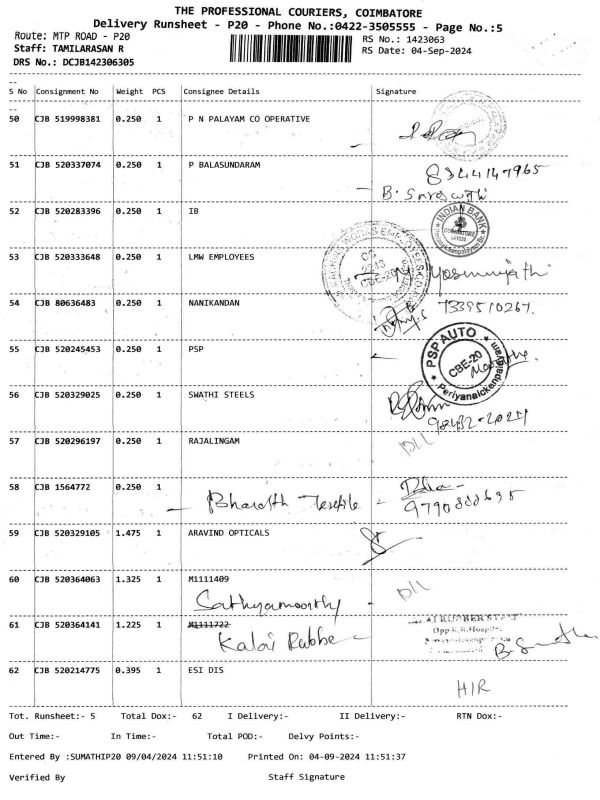 THE PROFESSIONAL COURIERS, COIMBATORE
Delivery Runsheet - P20 - Phone No.:0422-3505555 - Page No.:5
Route: MTP ROAD - P20 RS No.: 1423063
Staff: TAMILARASAN R RS Date: 04-Sep-2024
DRS No.: DCJB142306305
S No Consignment No Weight PCS Consignee Details Signature
50 CJB 519998381 0.250 1 P N PALAYAM CO OPERATIVE
51 CJB 520337074 0.250 1 P BALASUNDARAM 8344147965
B. Saraswathi
52 CJB 520283396 0.250 1 IB INDIAN BANK
COIMBATORE
53 CJB 520333648 0.250 1 LMW EMPLOYEES
54 CJB 80636483 0.250 1 NANIKANDAN 7339510267.
55 CJB 520245453 0.250 1 PSP PSP AUTO
CBE-20
Periyanaickenpalayam
56 CJB 520329025 0.250 1 SWATHI STEELS
57 CJB 520296197 0.250 1 RAJALINGAM D/L
58 CJB 1564772 0.250 1
Bharath Textile
59 CJB 520329105 1.475 1 ARAVIND OPTICALS
60 CJB 520364063 1.325 1 M1111409 D/L
Sathyamoorthy
61 CJB 520364141 1.225 1 M1111722
Kalai Rubber
62 CJB 520214775 0.395 1 ESI DIS
H/R
Tot. Runsheet:- 5 Total Dox:- 62 I Delivery:- II Delivery:- RTN Dox:-
Out Time:- In Time:- Total POD:- Delvy Points:-
Entered By :SUMATHIP20 09/04/2024 11:51:10 Printed On: 04-09-2024 11:51:37
Verified By Staff Signature